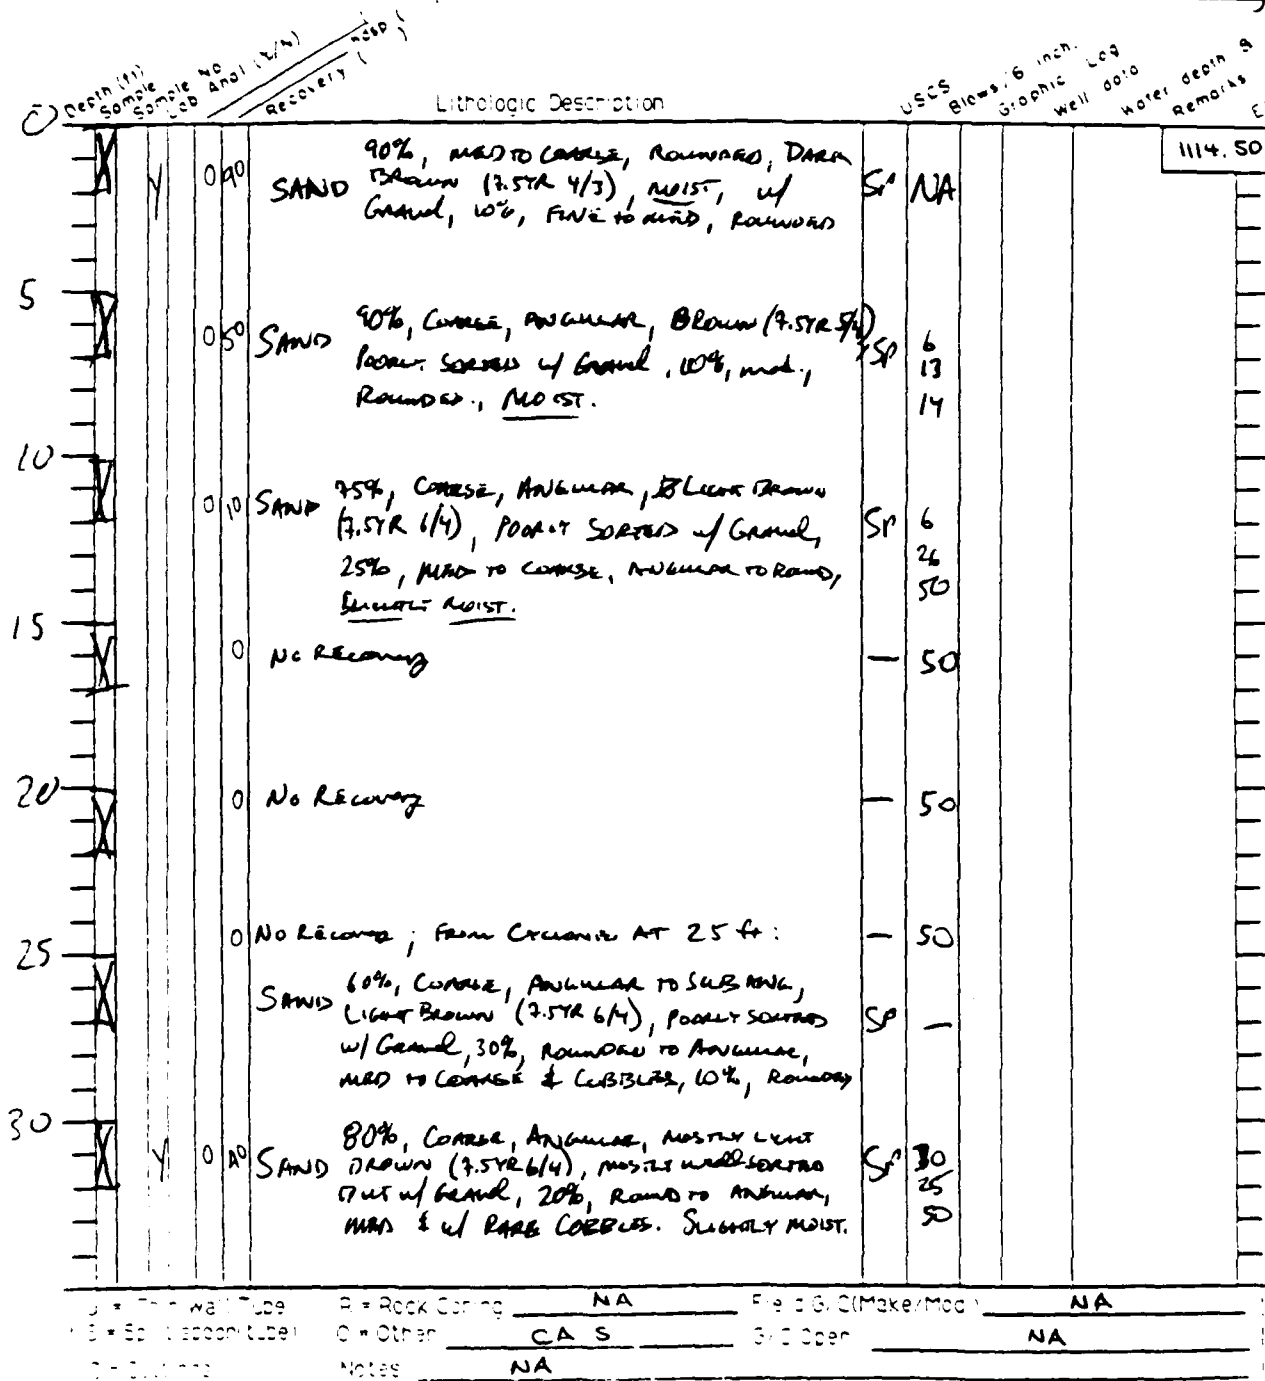 Depth (ft)
Sample
Sample No
Lab Anal (Y/N)
Recovery (
Lithologic Description
USCS
Blows/6 inch.
Graphic Log
Well data
Water depth &
Remarks
0
1114.50
Y 0 90 SAND 90%, MED TO COARSE, ROUNDED, DARK SP NA
BROWN (7.5YR 4/3), MOIST, w/
GRAVEL, 10%, FINE TO MED, ROUNDED
5
0 50 SAND 90%, COARSE, ANGULAR, BROWN (7.5YR 5/4) SP 6
POORLY SORTED w/ GRAVEL, 10%, med., 13
ROUNDED., MOIST. 14
10
0 10 SAND 75%, COARSE, ANGULAR, LIGHT BROWN SP 6
(7.5YR 6/4), POORLY SORTED w/ GRAVEL, 26
25%, MED TO COARSE, ANGULAR TO ROUND, 50
SLIGHTLY MOIST.
15
0 No RECOVERY — 50
20
0 No RECOVERY — 50
0 No RECOVERY; FROM CYCLONE AT 25 ft: — 50
25
SAND 60%, COARSE, ANGULAR TO SUBANG, SP —
LIGHT BROWN (7.5YR 6/4), POORLY SORTED
w/ GRAVEL, 30%, ROUNDED TO ANGULAR,
MED TO COARSE & COBBLES, 10%, ROUNDED
30
Y 0 SAND 80%, COARSE, ANGULAR, MOSTLY LIGHT SP 30
BROWN (7.5YR 6/4), MOSTLY WELL SORTED 25
BUT w/ GRAVEL, 20%, ROUND TO ANGULAR, 50
MED & w/ RARE COBBLES. SLIGHTLY MOIST.
Thin Wall Tube R = Rock Coring NA Field G/C(Make/Mod) NA
Split spoon(tube) O = Other CAS G/C Oper NA
Notes NA